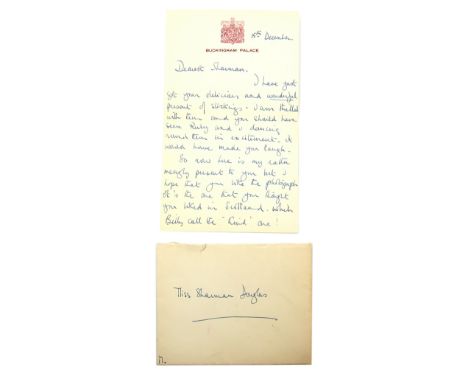 8th December
BUCKINGHAM PALACE
Dearest Sharman.
I have just
got your delicious and wonderful
present of stockings. I am thrilled
with them and you should have
seen Ruby and I dancing
round them in excitement. It
would have made you laugh.
So now here is my rather
present to you but I
hope that you like the photograph
It's the one that you thought
you liked in Scotland. Which
call the "Kind" one!
Miss Sharman Douglas
M.